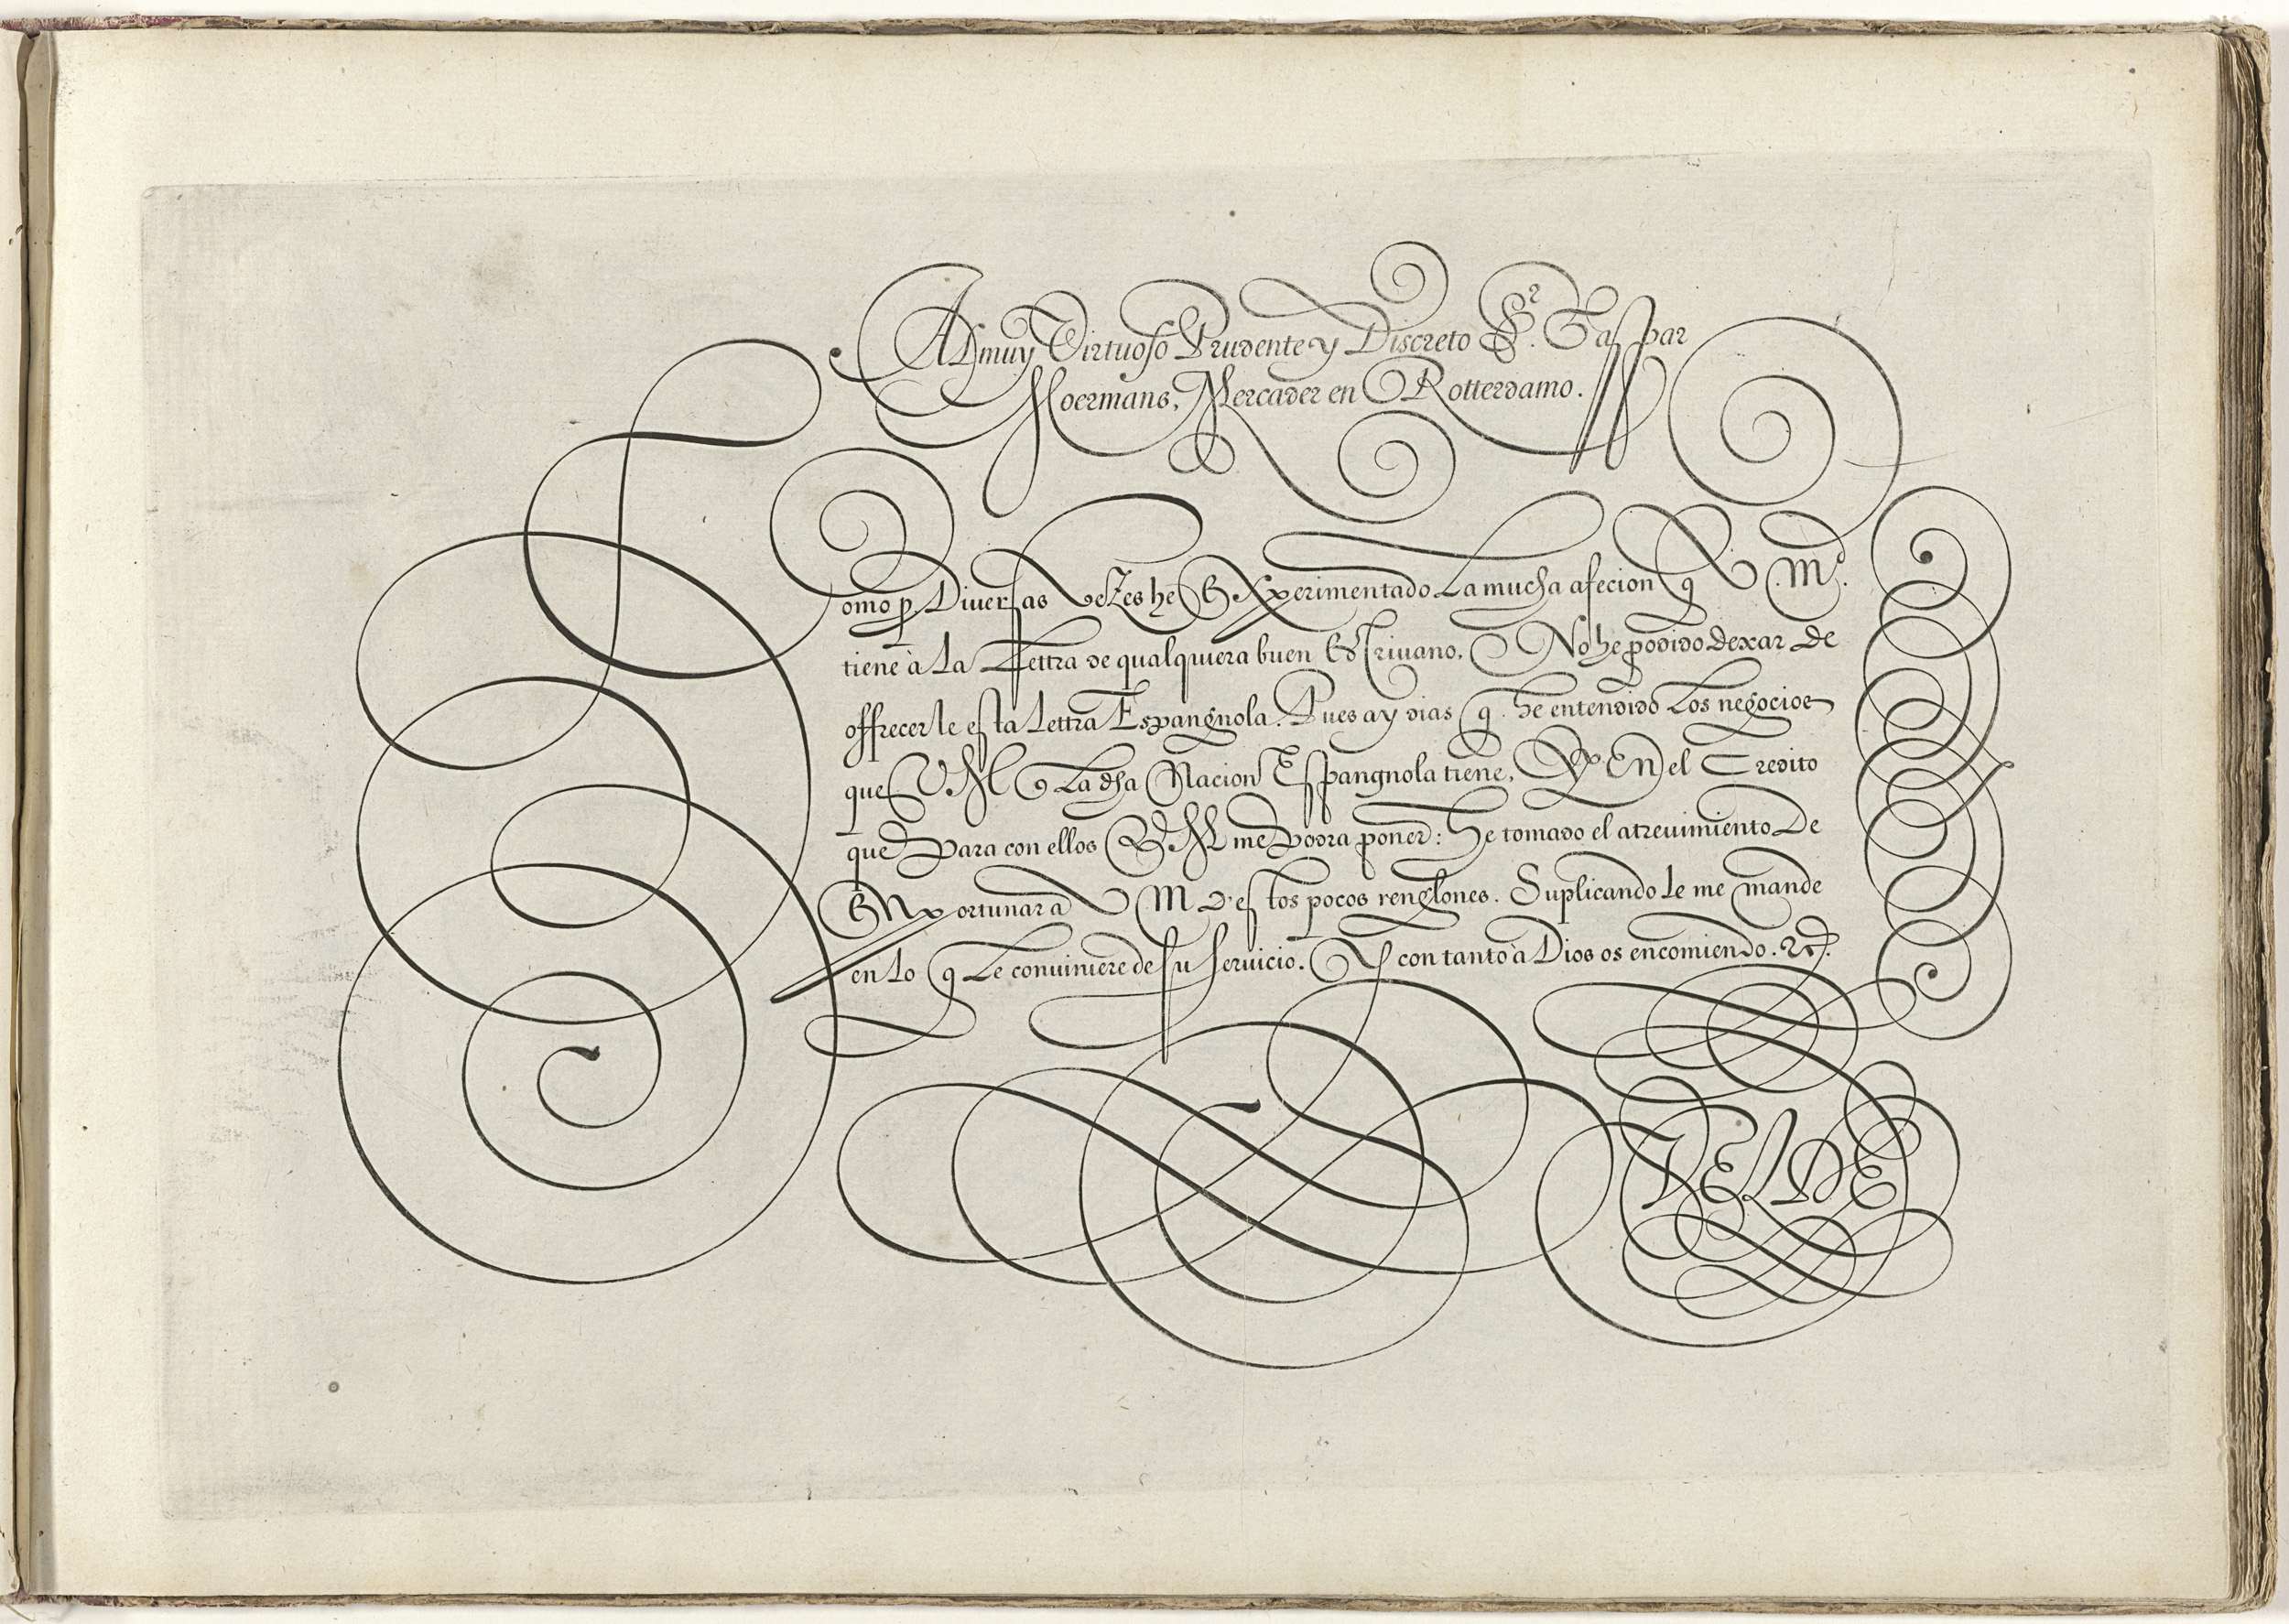 Al muy Virtuoso Prudente y Discreto S.r Gaspar
Moermans, Mercader en Rotterdamo.
Como p. Diuersas veZes he EXperimentado La mucha afecion q V. M.d.
tiene à La Lettra de qualquiera buen EsCriuano, No he podido dexar de
offrecerle esta Lettra Espangnola. Pues ay dias q. he entendido Los negocios
que V M Co La dha Nacion Espangnola tiene, Y EN el Credito
que Para con ellos V M me podra poner: He tomado el atreuimiento De
ENportunar a V M d'estos pocos renglones. Suplicando Le me mande
en Lo q Le conuiniere de su seruicio. Y con tanto à Dios os encomiendo. &c.
VELDE